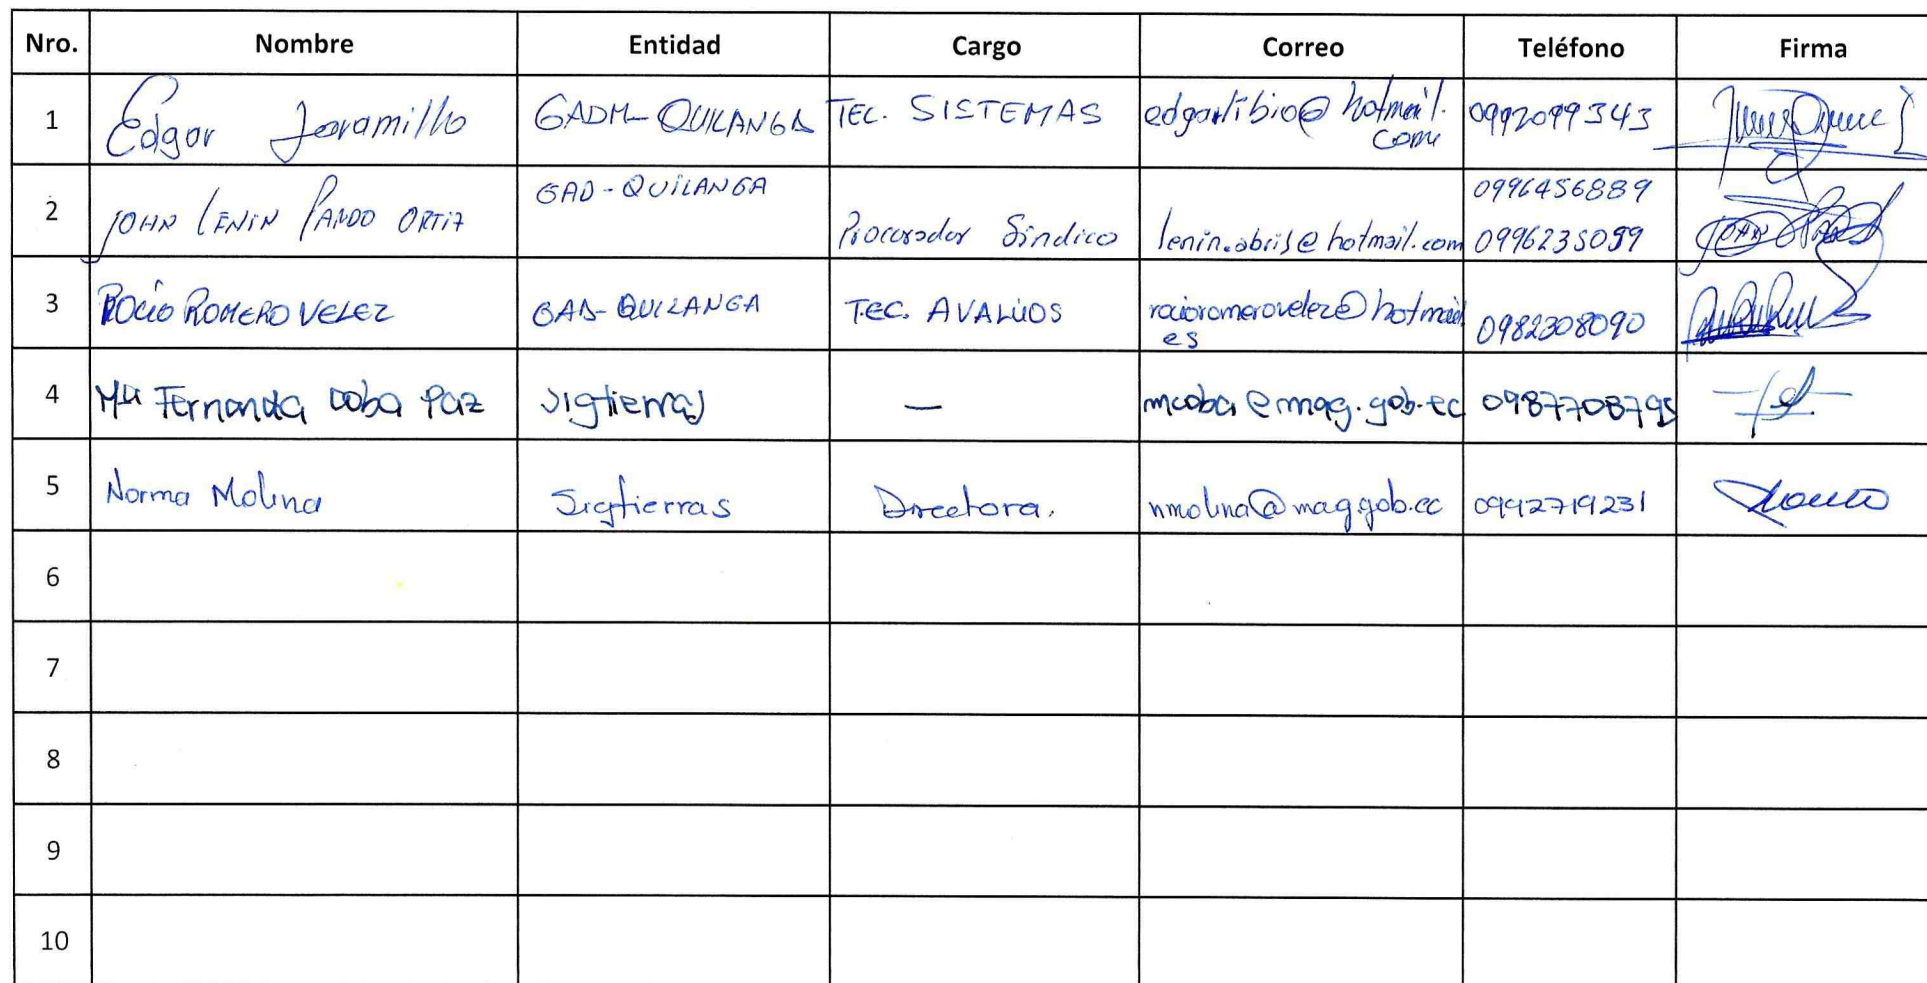 Nro. Nombre Entidad Cargo Correo Teléfono Firma
1 Edgar Jaramillo GADM-QUILANGA TEC. SISTEMAS edgartibio@hotmail. 0992099343
com
2 JOHN LENIN PARDO ORTIZ GAD-QUILANGA Procurador Síndico lenin.abris@hotmail.com 0996456889
0996235099
3 ROCIO ROMERO VELEZ GAD-QUILANGA TEC. AVALÚOS rocioromerovelez@hotmail 0982308090
es
4 Ma Fernanda Coba Paz Sigtierras — mcoba@mag.gob.ec 0987708795
5 Norma Molina Sigtierras Directora. nmolina@mag.gob.ec 0992719231
6
7
8
9
10